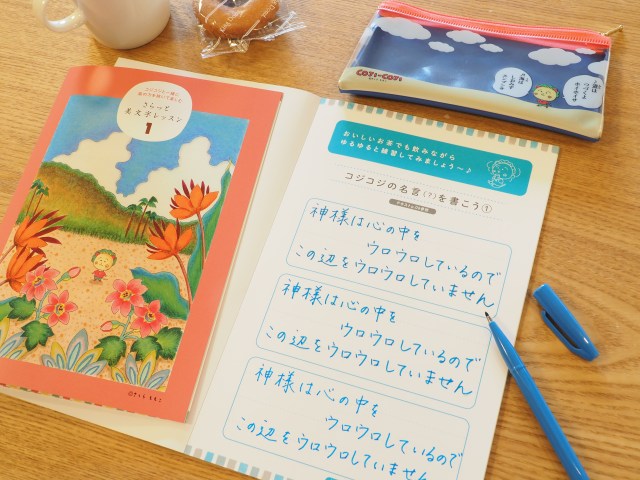 さらっと
美文字レッスン
1
©さくらももこ
おいしいお茶でも飲みながら
ゆるゆると練習してみましょう〜♪
コジコジの名言(?)を書こう①
神様は心の中を
ウロウロしているので
この辺をウロウロしていません
神様は心の中を
ウロウロしているので
この辺をウロウロしていません
神様は心の中を
ウロウロしているので
この辺をウロウロしていません
COJI-COJI